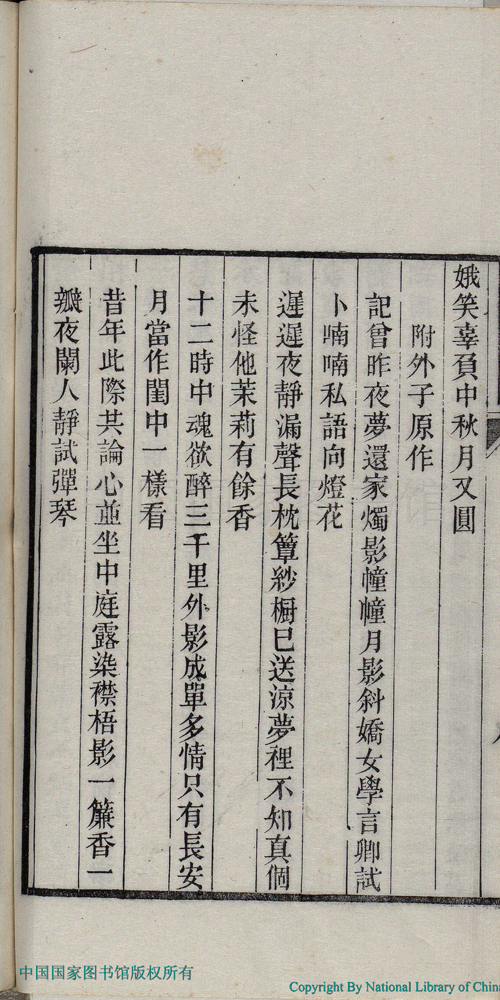 娥笑辜負中秋月又圓
附外子原作
記曾昨夜夢還家燭影幢幢月影斜嬌女學言卿試
卜喃喃私語向燈花
遲遲夜靜漏聲長枕簟紗櫥已送涼夢裡不知真個
未怪他茉莉有餘香
十二時中魂欲醉三千里外影成單多情只有長安
月當作閨中一樣看
昔年此際共論心並坐中庭露染襟梧影一簾香一
瓣夜闌人靜試彈琴
中国国家图书馆版权所有
Copyright By National Library of Chin